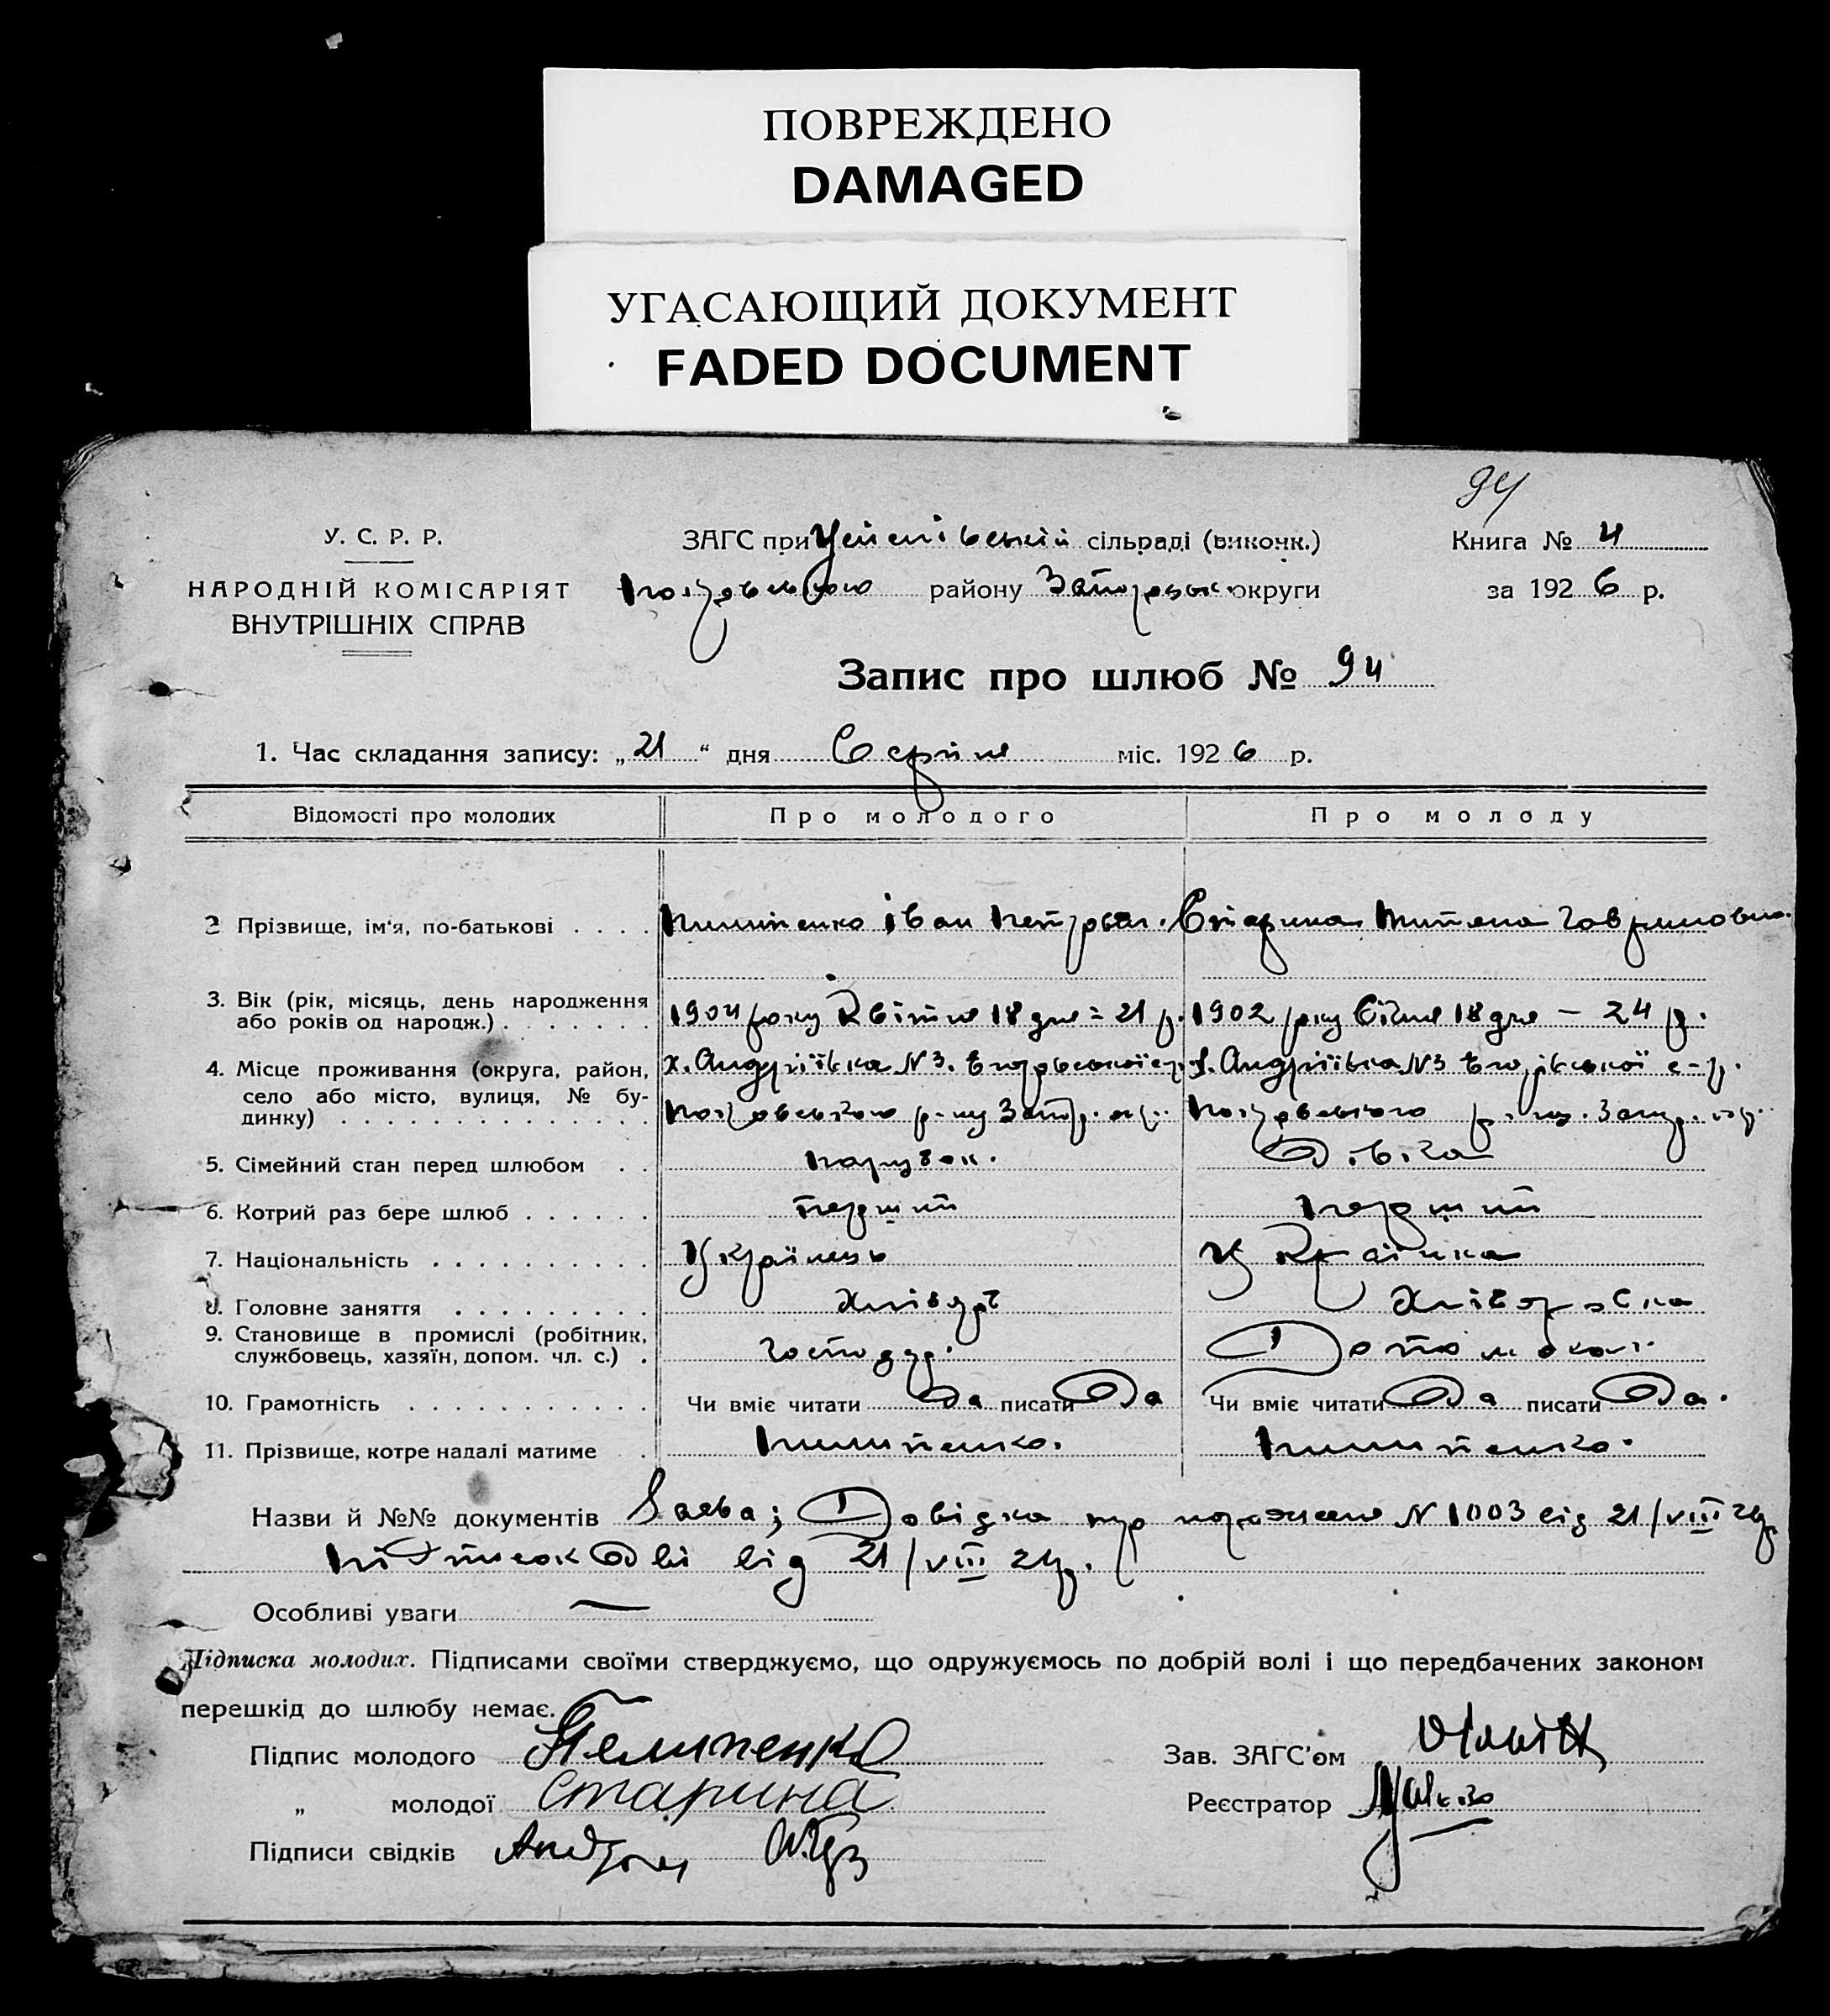 ПОВРЕЖДЕНО
DAMAGED
УГАСАЮЩИЙ ДОКУМЕНТ
FADED DOCUMENT
94
У. С. Р. Р.
НАРОДНІЙ КОМІСАРІЯТ
ВНУТРІШНІХ СПРАВ
ЗАГС при сільраді (виконк.)
району Запорізьк округи
Книга № 4
за 1926 р.
Запис про шлюб № 94
1. Час складання запису: „21“ дня Серпня міс. 1926 р.
Відомості про молодих Про молодого Про молоду
2 Прізвище, ім'я, по-батькові Пилипенко Іван Петрович. Старина
3. Вік (рік, місяць, день народження
або років од народж.) 1904 року Квітня 18 дня = 21 р. 1902 року Січня 18 дня — 24 р.
4. Місце проживання (округа, район,
село або місто, вулиця, № бу-
динку)
х. Андріївка № 3. х. Андріївка № 3
5. Сімейний стан перед шлюбом парубок. Дівка
6. Котрий раз бере шлюб перший перший
7. Національність Українець Українка
8. Головне заняття Хлібороб Хліборобка
9. Становище в промислі (робітник,
службовець, хазяїн, допом. чл. с.) Господар.
10. Грамотність Чи вміє читати Да писати Да Чи вміє читати Да писати Да.
11. Прізвище, котре надалі матиме Пилипенко. Пилипенко.
Назви й №№ документів Заява; Довідка про N 1003 від 21/VIII 26р.
Підписок Дві від 21/VIII 26р.
Особливі уваги —
Підписка молодих. Підписами своїми стверджуємо, що одружуємось по добрій волі і що передбачених законом
перешкід до шлюбу немає.
Підпис молодого Пелипенко
„ молодої Старина
Підписи свідків
Зав. ЗАГС'ом
Реєстратор